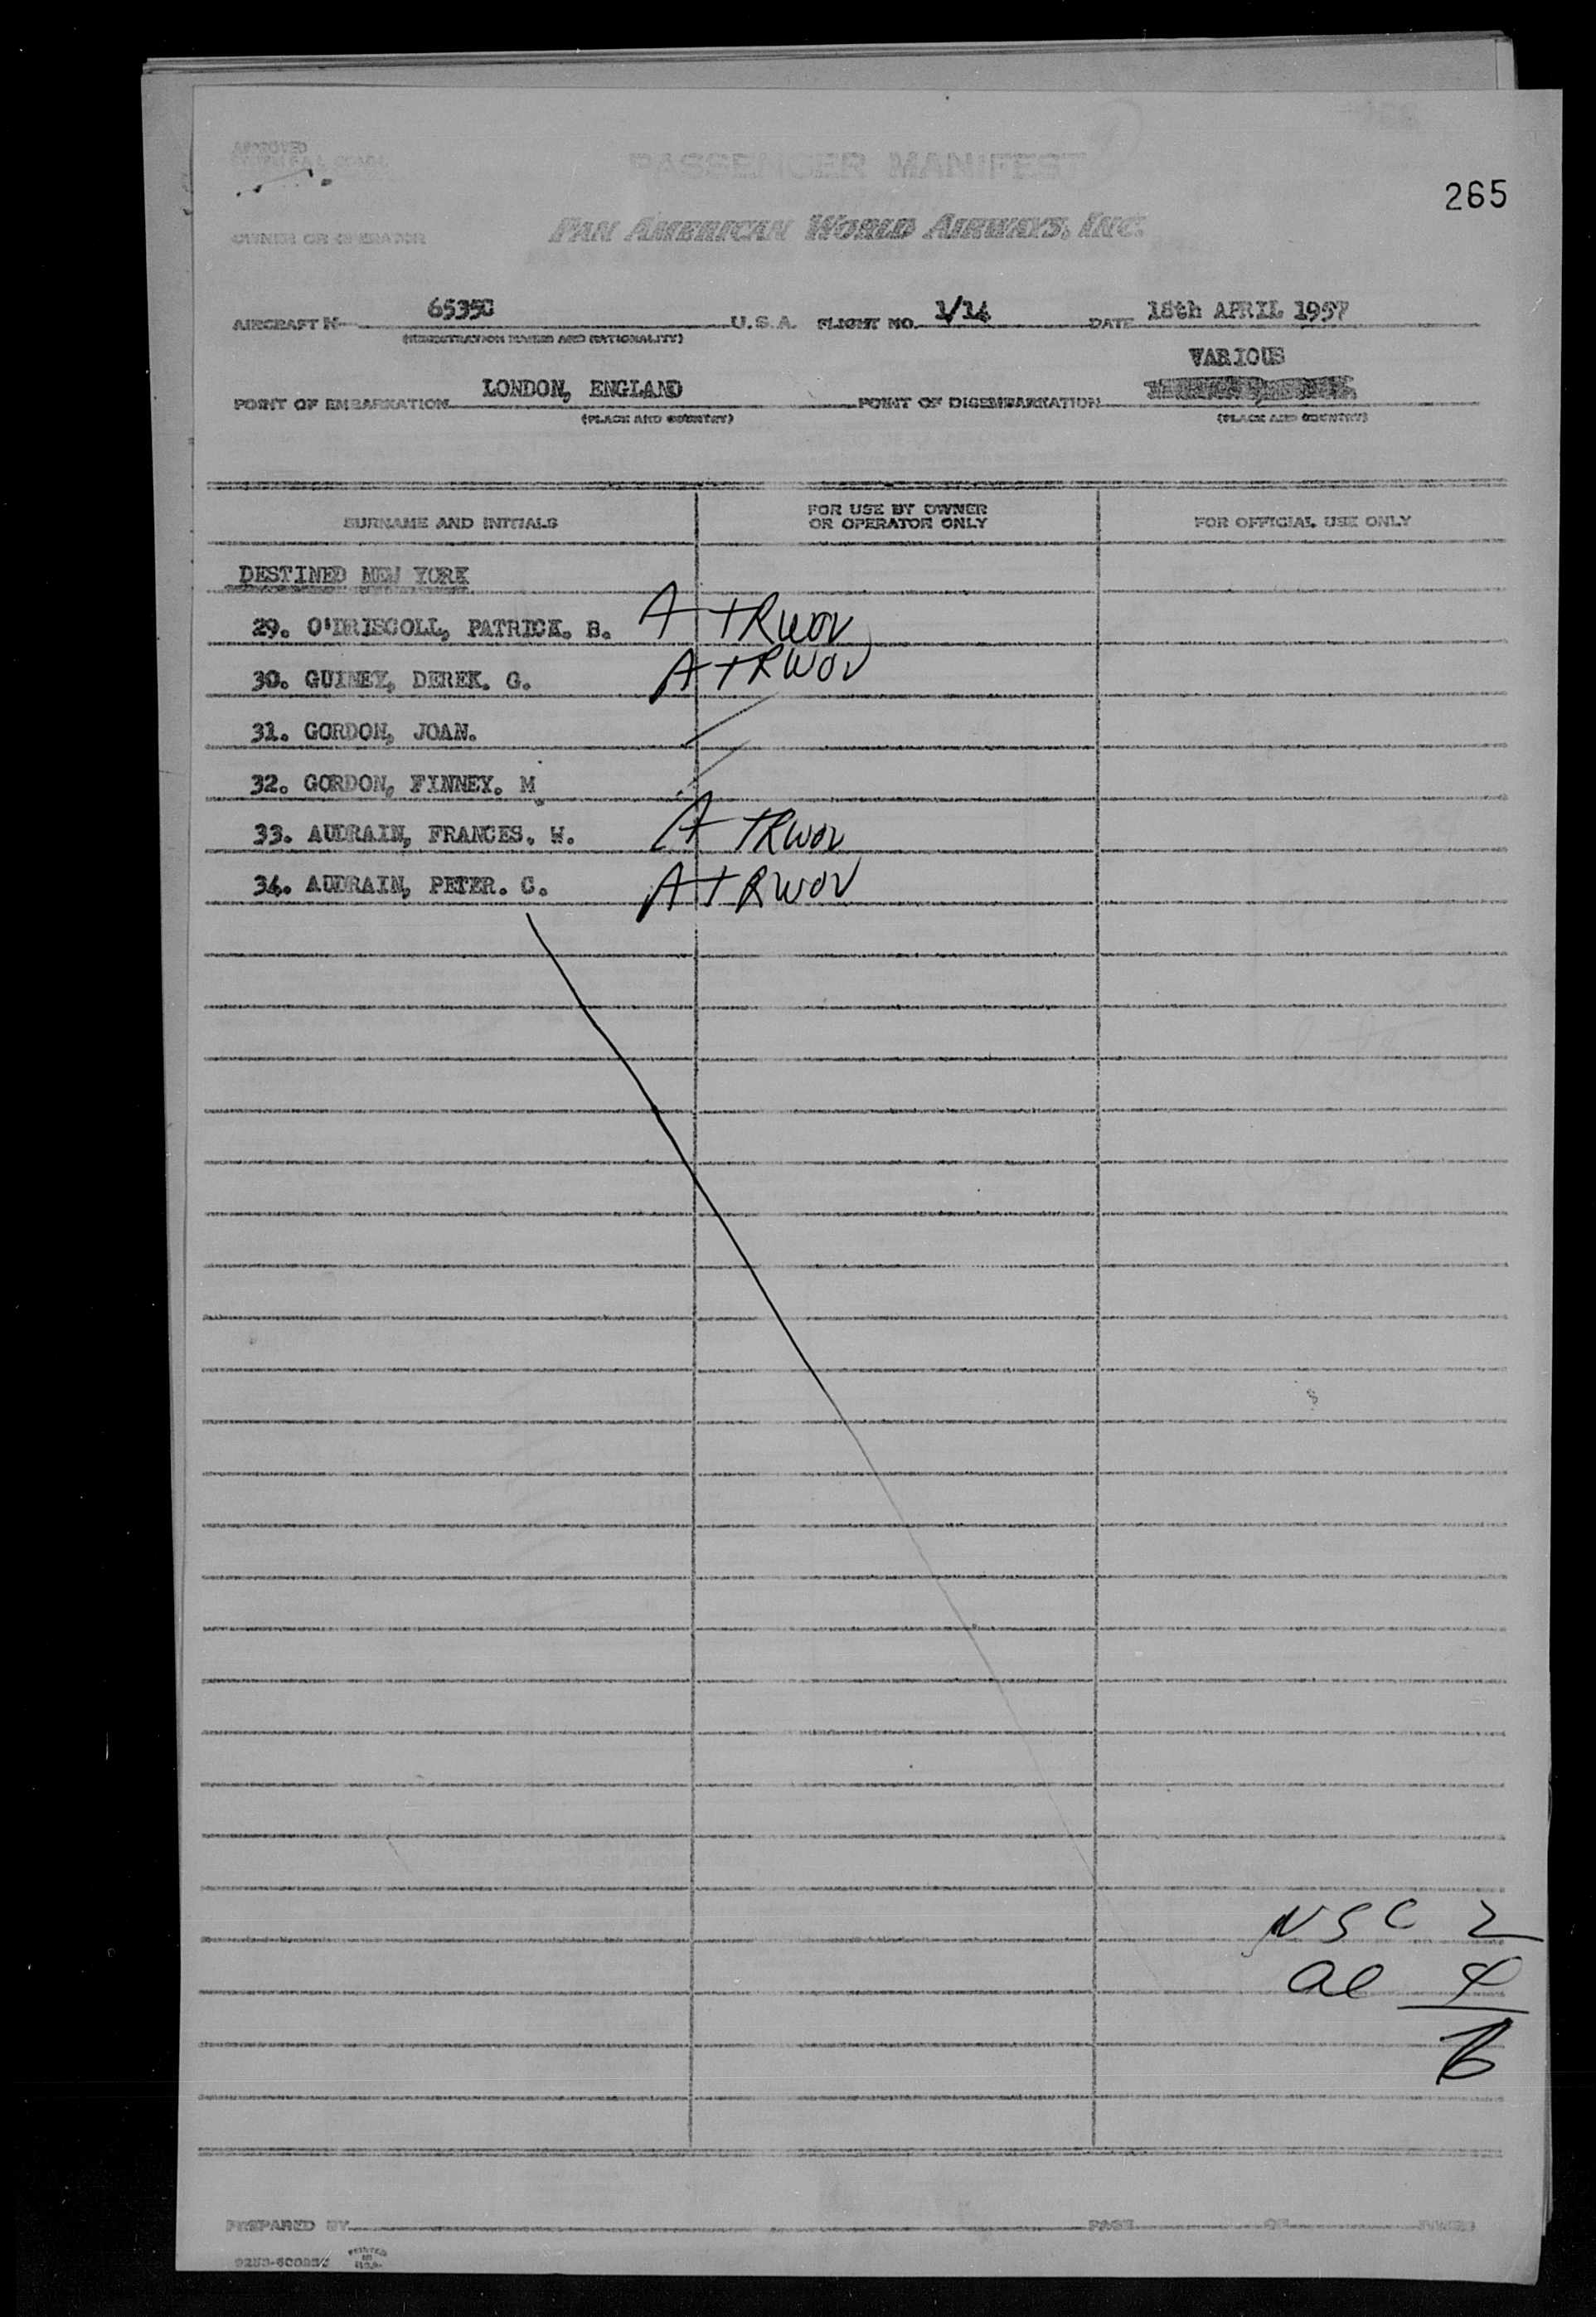 265
APPROVED
PASSENGER MANIFEST
OWNER OR OPERATOR PAN AMERICAN WORLD AIRWAYS, INC.
AIRCRAFT N 65350 U.S.A. FLIGHT NO. 1/14 DATE 18th APRIL 1957
(REGISTRATION MARKS AND NATIONALITY)
VARIOUS
POINT OF EMBARKATION LONDON, ENGLAND POINT OF DISEMBARKATION
(PLACE AND COUNTRY) (PLACE AND COUNTRY)
SURNAME AND INITIALS FOR USE BY OWNER OR OPERATOR ONLY FOR OFFICIAL USE ONLY
DESTINED NEW YORK
29. O'DRISCOLL, PATRICK. B. A TRWOV
30. GUINEY, DEREK. G. A TRWOV
31. GORDON, JOAN.
32. GORDON, FINNEY. M.
33. AUDRAIN, FRANCES. W. A TRWOV
34. AUDRAIN, PETER. C. A TRWOV
NSC 2
al 4
6
PREPARED BY PAGE OF PAGES
PRINTED IN U.S.A.